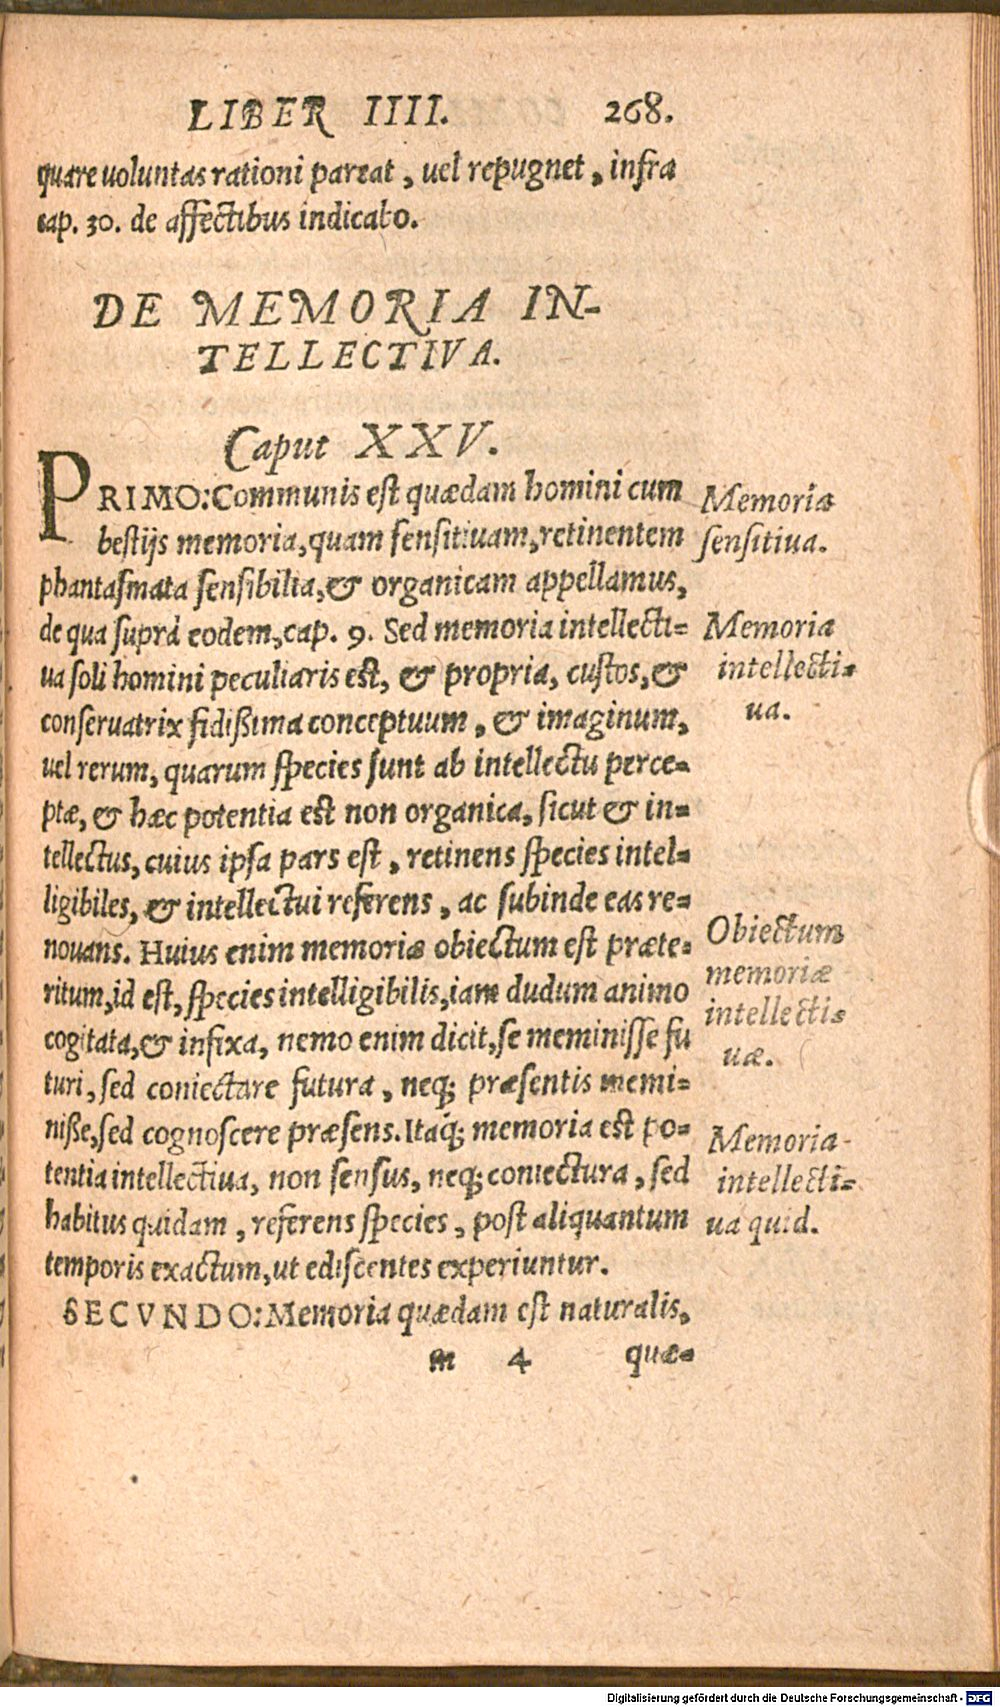 LIBER IIII. 268.
quare uoluntas rationi pareat, uel repugnet, infra
cap. 30. de affectibus indicabo.
DE MEMORIA IN-
TELLECTIVA.
Caput XXV.
PRIMO: Communis est quædam homini cum
bestijs memoria, quam sensitiuam, retinentem
phantasmata sensibilia, & organicam appellamus,
de qua suprà eodem, cap. 9. Sed memoria intellecti=
ua soli homini peculiaris est, & propria, custos, &
conseruatrix fidißima conceptuum, & imaginum,
uel rerum, quarum species sunt ab intellectu perce=
ptæ, & hæc potentia est non organica, sicut & in=
tellectus, cuius ipsa pars est, retinens species intel=
ligibiles, & intellectui referens, ac subinde eas re=
nouans. Huius enim memoriæ obiectum est præte=
ritum, id est, species intelligibilis, iam dudum animo
cogitata, & infixa, nemo enim dicit, se meminisse fu
turi, sed coniectare futura, neq; præsentis memi=
niße, sed cognoscere præsens. Itaq; memoria est po=
tentia intellectiua, non sensus, neq; coniectura, sed
habitus quidam, referens species, post aliquantum
temporis exactum, ut ediscentes experiuntur.
SECVNDO: Memoria quædam est naturalis,
m 4 quæ=
Memoria
sensitiua.
Memoria
intellecti=
ua.
Obiectum
memoriæ
intellecti=
uæ.
Memoria
intellecti=
ua quid.
Digitalisierung gefördert durch die Deutsche Forschungsgemeinschaft - DFG